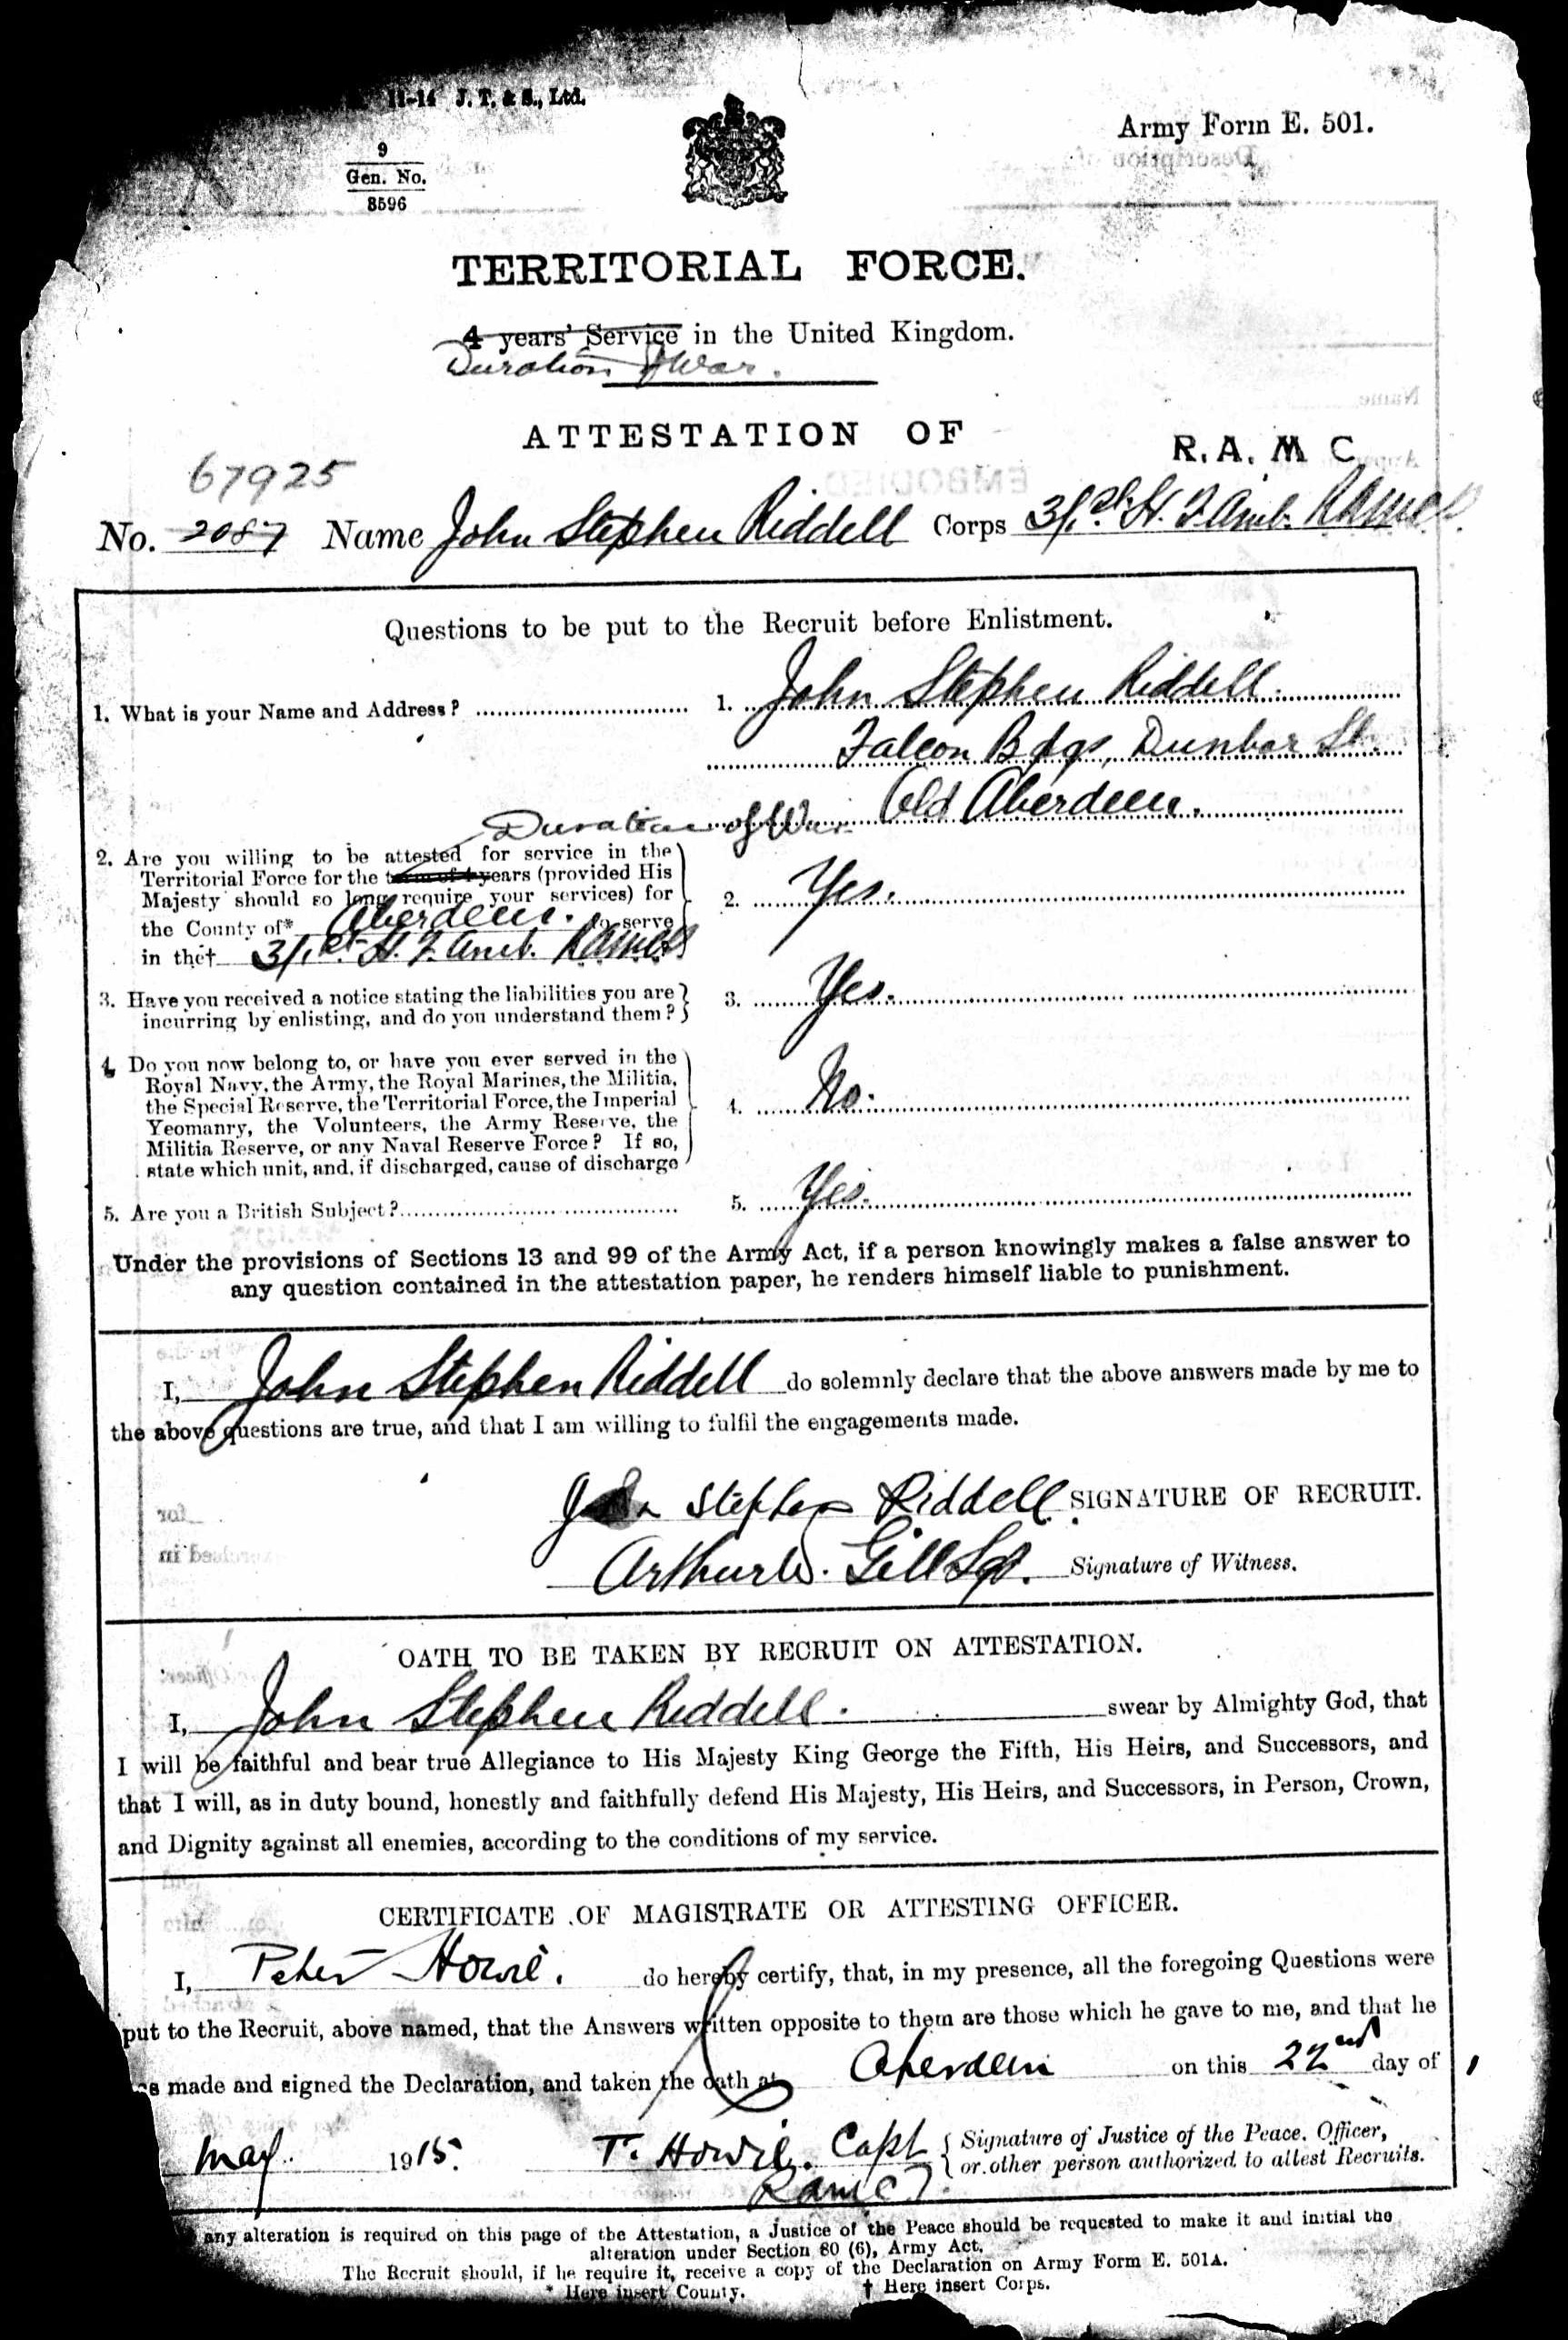 11-14 J. T. & S., Ltd.
Army Form E. 501.
9
Gen. No.
8596
TERRITORIAL FORCE.
4 years' Service in the United Kingdom.
Duration of War.
ATTESTATION OF
R. A. M C
67925
No. 2087 Name John Stephen Riddell Corps 3/1st H. F. Amb. RAMC
Questions to be put to the Recruit before Enlistment.
1. What is your Name and Address? 1. John Stephen Riddell.
Falcon Bdgs, Dunbar St.
Old Aberdeen.
Duration of War
2. Are you willing to be attested for service in the
Territorial Force for the term of 4 years (provided His
Majesty should so long require your services) for
the County of* Aberdeen. to serve
in the† 3/1st H. F. Amb. RAMC
2. Yes.
3. Have you received a notice stating the liabilities you are
incurring by enlisting, and do you understand them?
3. Yes.
4. Do you now belong to, or have you ever served in the
Royal Navy, the Army, the Royal Marines, the Militia,
the Special Reserve, the Territorial Force, the Imperial
Yeomanry, the Volunteers, the Army Reserve, the
Militia Reserve, or any Naval Reserve Force? If so,
state which unit, and, if discharged, cause of discharge
4. No.
5. Are you a British Subject? 5. Yes.
Under the provisions of Sections 13 and 99 of the Army Act, if a person knowingly makes a false answer to
any question contained in the attestation paper, he renders himself liable to punishment.
I, John Stephen Riddell do solemnly declare that the above answers made by me to
the above questions are true, and that I am willing to fulfil the engagements made.
John Stephen Riddell SIGNATURE OF RECRUIT.
Arthur W. Gill Sgt. Signature of Witness.
OATH TO BE TAKEN BY RECRUIT ON ATTESTATION.
I, John Stephen Riddell. swear by Almighty God, that
I will be faithful and bear true Allegiance to His Majesty King George the Fifth, His Heirs, and Successors, and
that I will, as in duty bound, honestly and faithfully defend His Majesty, His Heirs, and Successors, in Person, Crown,
and Dignity against all enemies, according to the conditions of my service.
CERTIFICATE OF MAGISTRATE OR ATTESTING OFFICER.
I, Peter Howie. do hereby certify, that, in my presence, all the foregoing Questions were
put to the Recruit, above named, that the Answers written opposite to them are those which he gave to me, and that he
made and signed the Declaration, and taken the oath at Aberdeen on this 22nd day of
May 1915. P. Howie. Capt
RAMCT.
Signature of Justice of the Peace, Officer,
or other person authorized to attest Recruits.
any alteration is required on this page of the Attestation, a Justice of the Peace should be requested to make it and initial the
alteration under Section 80 (6), Army Act.
The Recruit should, if he require it, receive a copy of the Declaration on Army Form E. 501A.
* Here insert County. † Here insert Corps.